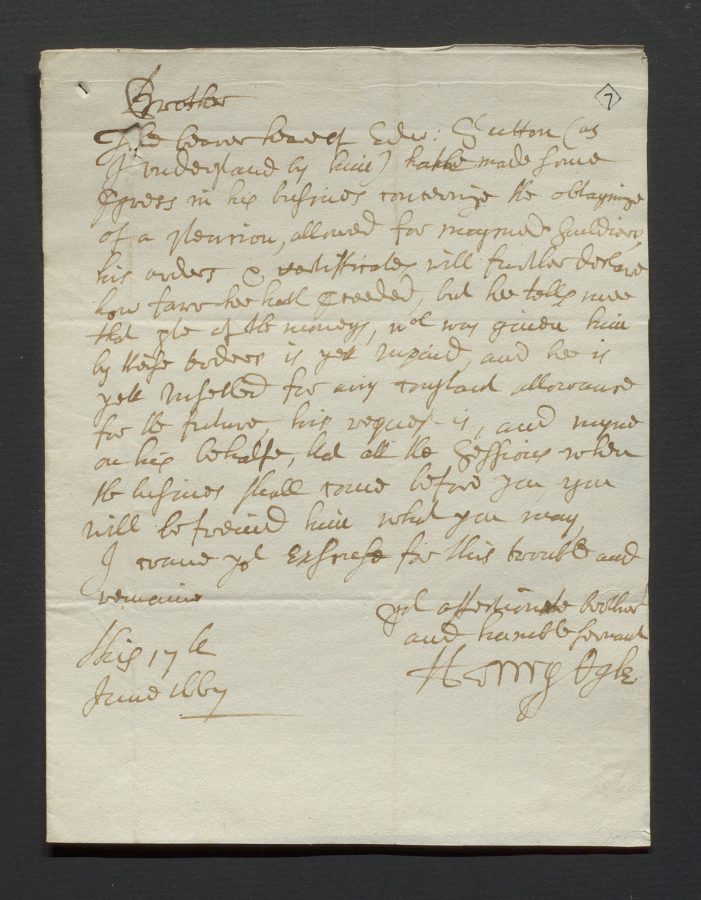 7
Brother
The bearer heareof Edw: Sutton (as
I understand by him) hathe made some
pgress in his busines concerninge the obtayninge
of a pension, allowed for maymed Souldiers,
his orders & certifficates will further declare
how farre hee hath pceeded, but hee tells mee
that pte of the moneys, wch was given him
by these orders is yet unpaid, and hee is
yett unsetled for any constant allowance
for the future, his request is, and myne
on his behalfe, that att the Sessions when
the busines shall come before you, you
will befreind him what you may,
I crave yor Excuse for this trouble and
remaine
yor affectionate brother
and humble servant
Henry Ogle
this 17th
June 1667